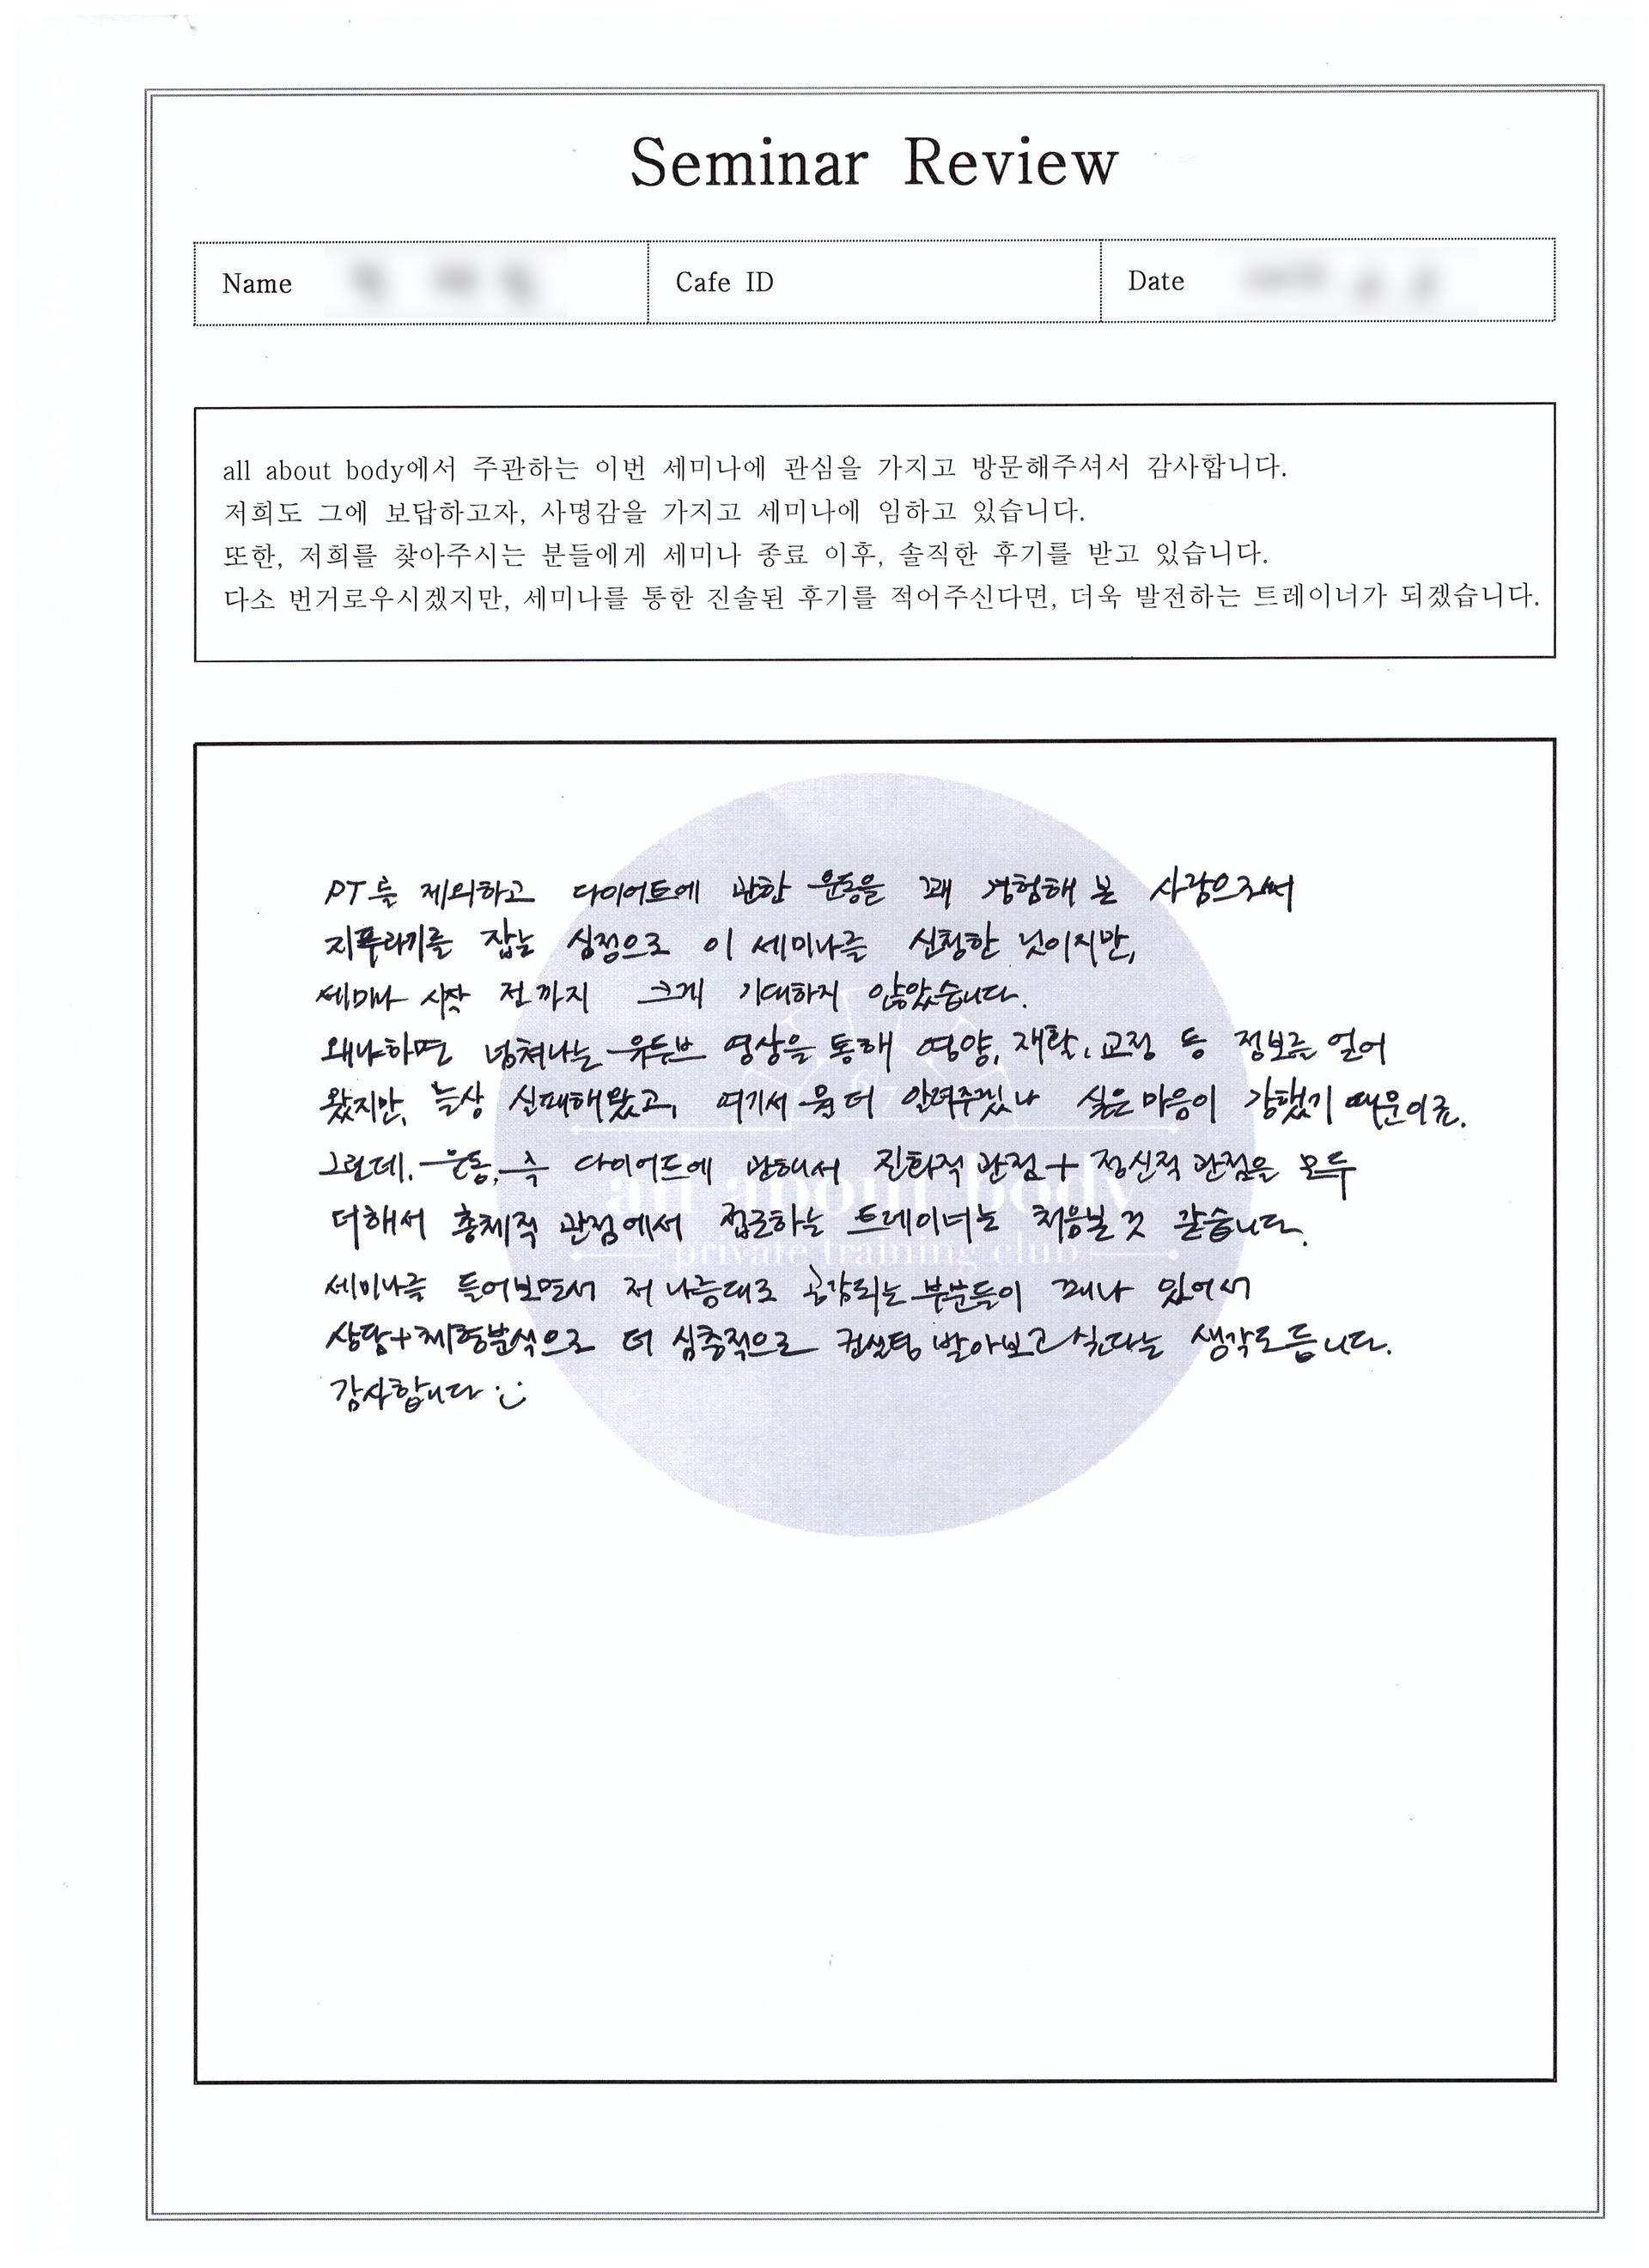 Seminar Review
Name
Cafe ID
Date
all about body에서 주관하는 이번 세미나에 관심을 가지고 방문해주셔서 감사합니다.
저희도 그에 보답하고자, 사명감을 가지고 세미나에 임하고 있습니다.
또한, 저희를 찾아주시는 분들에게 세미나 종료 이후, 솔직한 후기를 받고 있습니다.
다소 번거로우시겠지만, 세미나를 통한 진솔된 후기를 적어주신다면, 더욱 발전하는 트레이너가 되겠습니다.
PT를 제외하고 다이어트에 관한 운동을 꽤 경험해 본 사람으로써
지푸라기를 잡는 심정으로 이 세미나를 신청한 것이지만,
세미나 시작 전까지 크게 기대하지 않았습니다.
왜냐하면 넘쳐나는 유튜브 영상을 통해 영양, 재활, 교정 등 정보를 얻어
왔지만, 늘상 실패해왔고, 여기서 뭘 더 알려주겠나 싶은 마음이 강했기 때문이죠.
그런데, 운동, 즉 다이어트에 관해서 진화적 관점+정신적 관점을 모두
더해서 총체적 관점에서 접근하는 트레이너는 처음뵌 것 같습니다.
세미나를 들어보면서 저 나름대로 공감되는 부분들이 꽤나 있어서
상담+체형분석으로 더 심층적으로 컨설팅 받아보고싶다는 생각도 듭니다.
감사합니다 :)
all about body
private training club